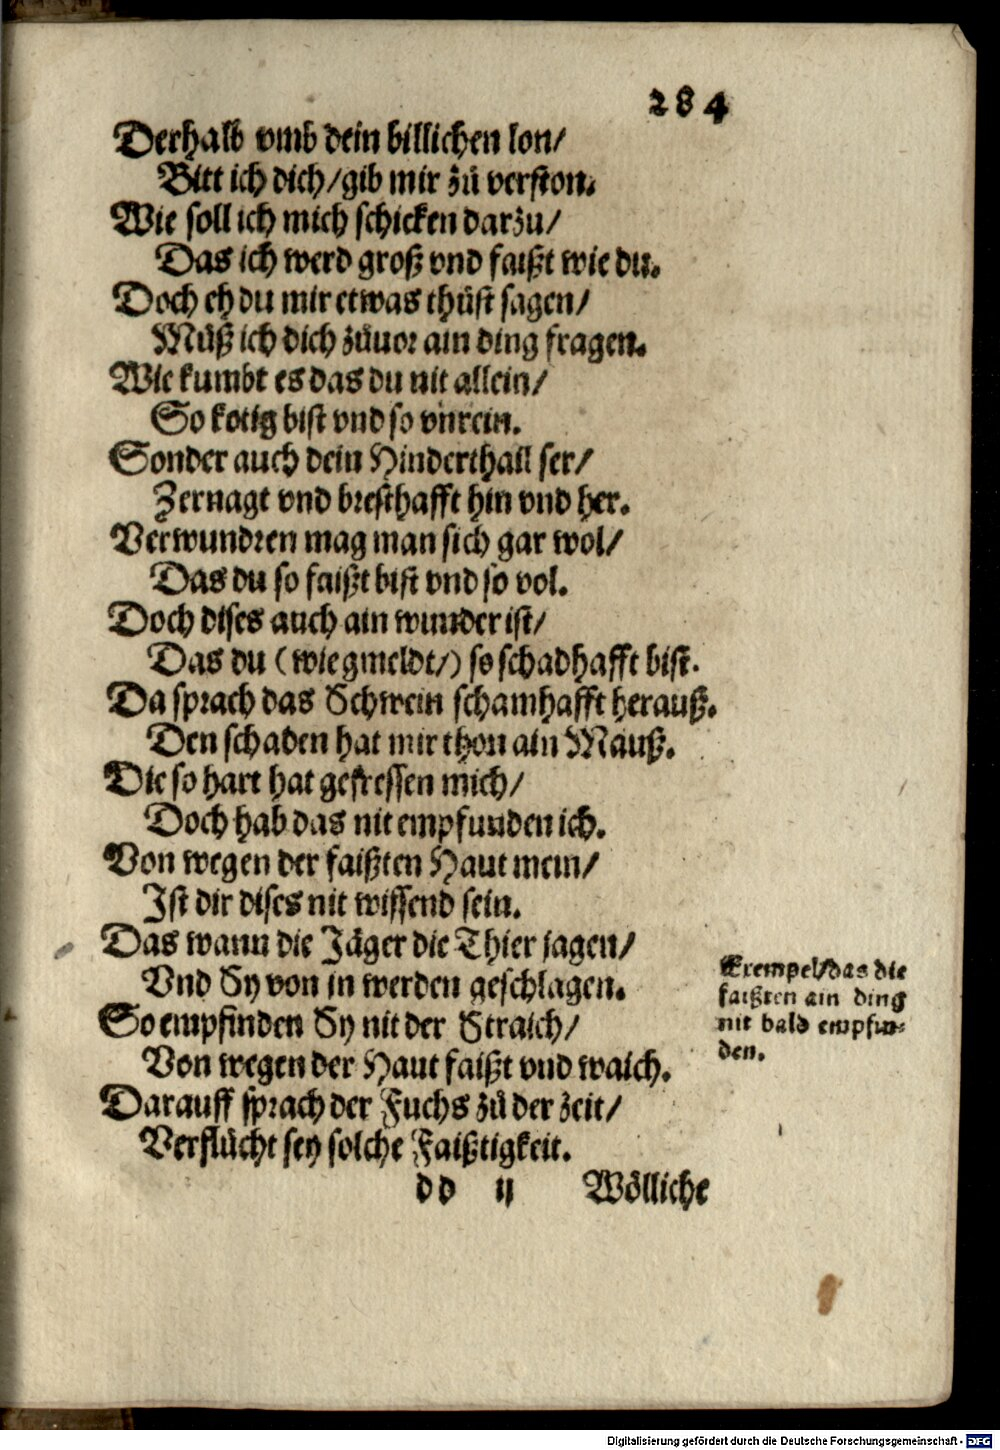 284
Derhalb vmb dein billichen lon/
Bitt ich dich/gib mir zů verston.
Wie soll ich mich schicken darzu/
Das ich werd groß vnd faißt wie du.
Doch eh du mir etwas thůst sagen/
Můß ich dich zůuor ain ding fragen.
Wie kumbt es das du nit allein/
So kotig bist vnd so vnrein.
Sonder auch dein Hinderthail ser/
Zernagt vnd bresthafft hin vnd her.
Verwundren mag man sich gar wol/
Das du so faißt bist vnd so vol.
Doch dises auch ain wunder ist/
Das du (wie gmeldt/) so schadhafft bist.
Da sprach das Schwein schamhafft herauß.
Den schaden hat mir thon ain Mauß.
Die so hart hat gefressen mich/
Doch hab das nit empfunden ich.
Von wegen der faißten Haut mein/
Ist dir dises nit wissend sein.
Das wann die Jäger die Thier jagen/
Vnd Sy von in werden geschlagen.
So empfinden Sy nit der Straich/
Von wegen der Haut faißt vnd waich.
Darauff sprach der Fuchs zů der zeit/
Verflůcht sey solche Faißtigkeit.
dd ij Wölliche
Exempel/das die
faißten ain ding
nit bald empfin-
den.
Digitalisierung gefördert durch die Deutsche Forschungsgemeinschaft - DFG